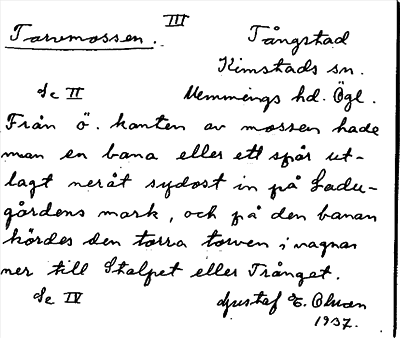 III
Torvmossen.
Tångstad
Kimstads sn.
Se II
Memmings hd. Ögl.
Från ö. kanten av mossen hade
man en bana eller ett spår ut-
lagt neråt sydost in på Ladu-
gårdens mark, och på den banan
kördes den torra torven i vagnar
ner till Stalpet eller Trånget.
Se IV
Gustaf E. Olsson
1937.